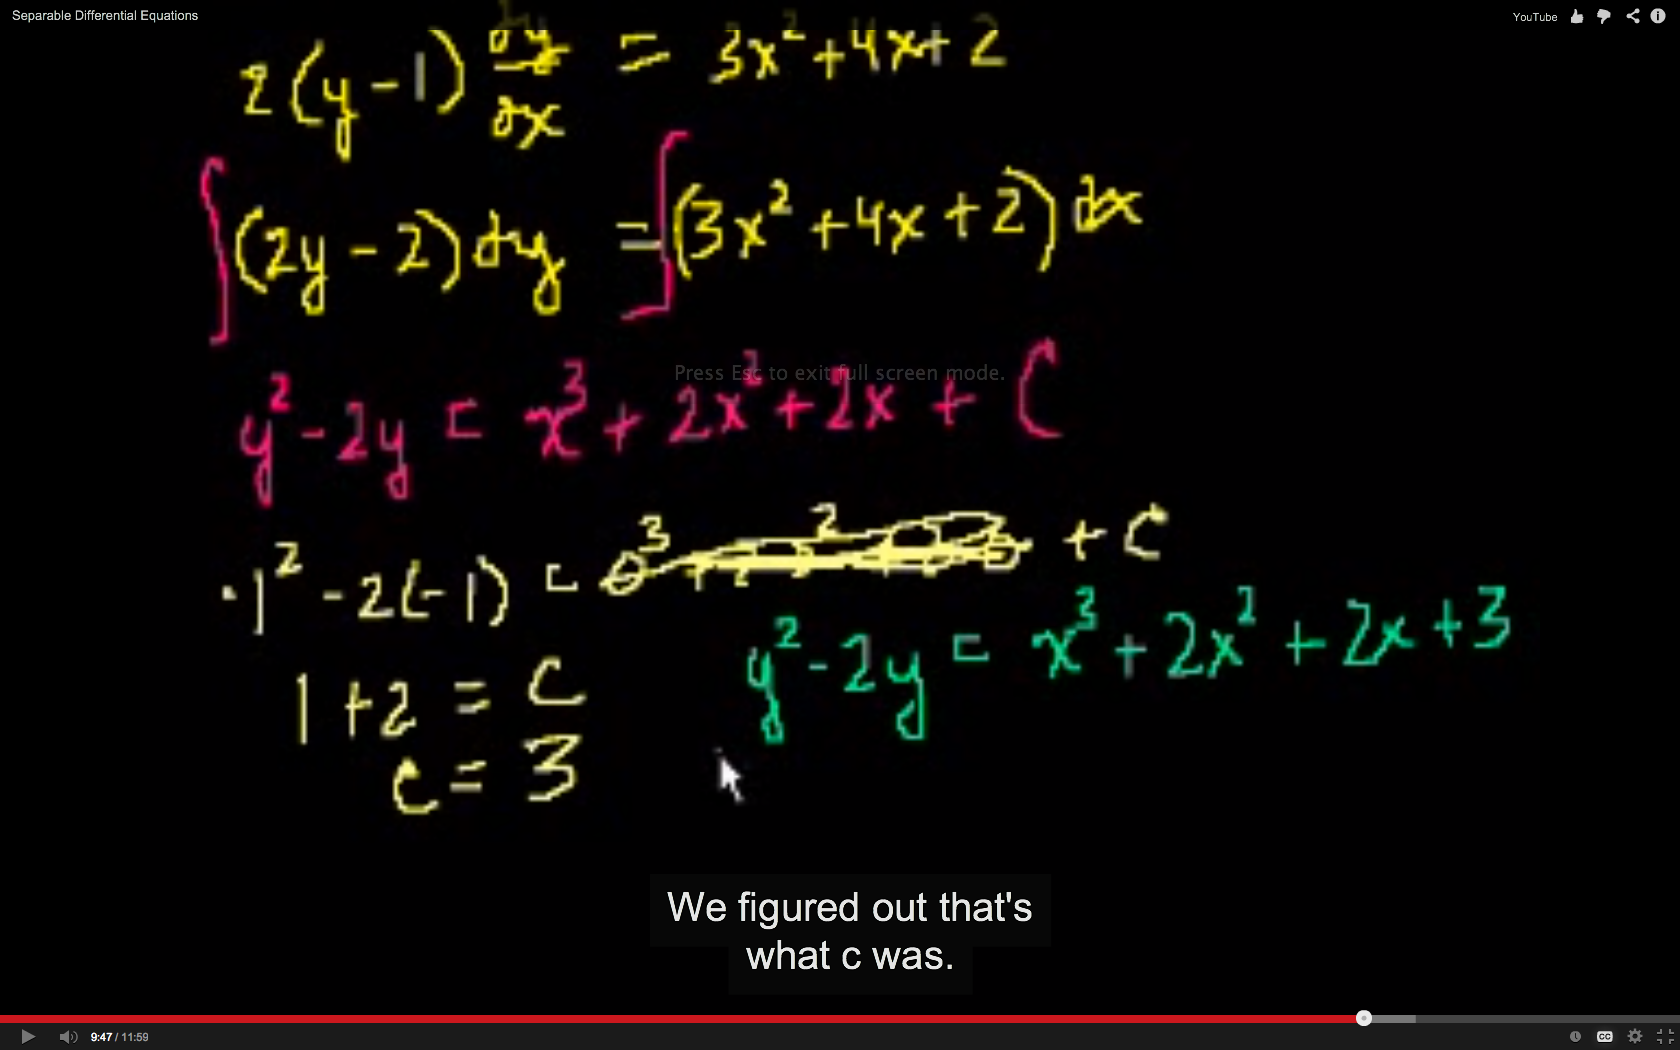 Separable Differential Equations
YouTube
2(y-1) dy/dx = 3x²+4x+2
∫(2y-2)dy = ∫(3x²+4x+2)dx
Press Esc to exit full screen mode.
y²-2y = x³+2x²+2x+C
-1²-2(-1) = +C
y²-2y = x³+2x²+2x+3
1+2 = C
C = 3
We figured out that's
what c was.
9:47 / 11:59
CC